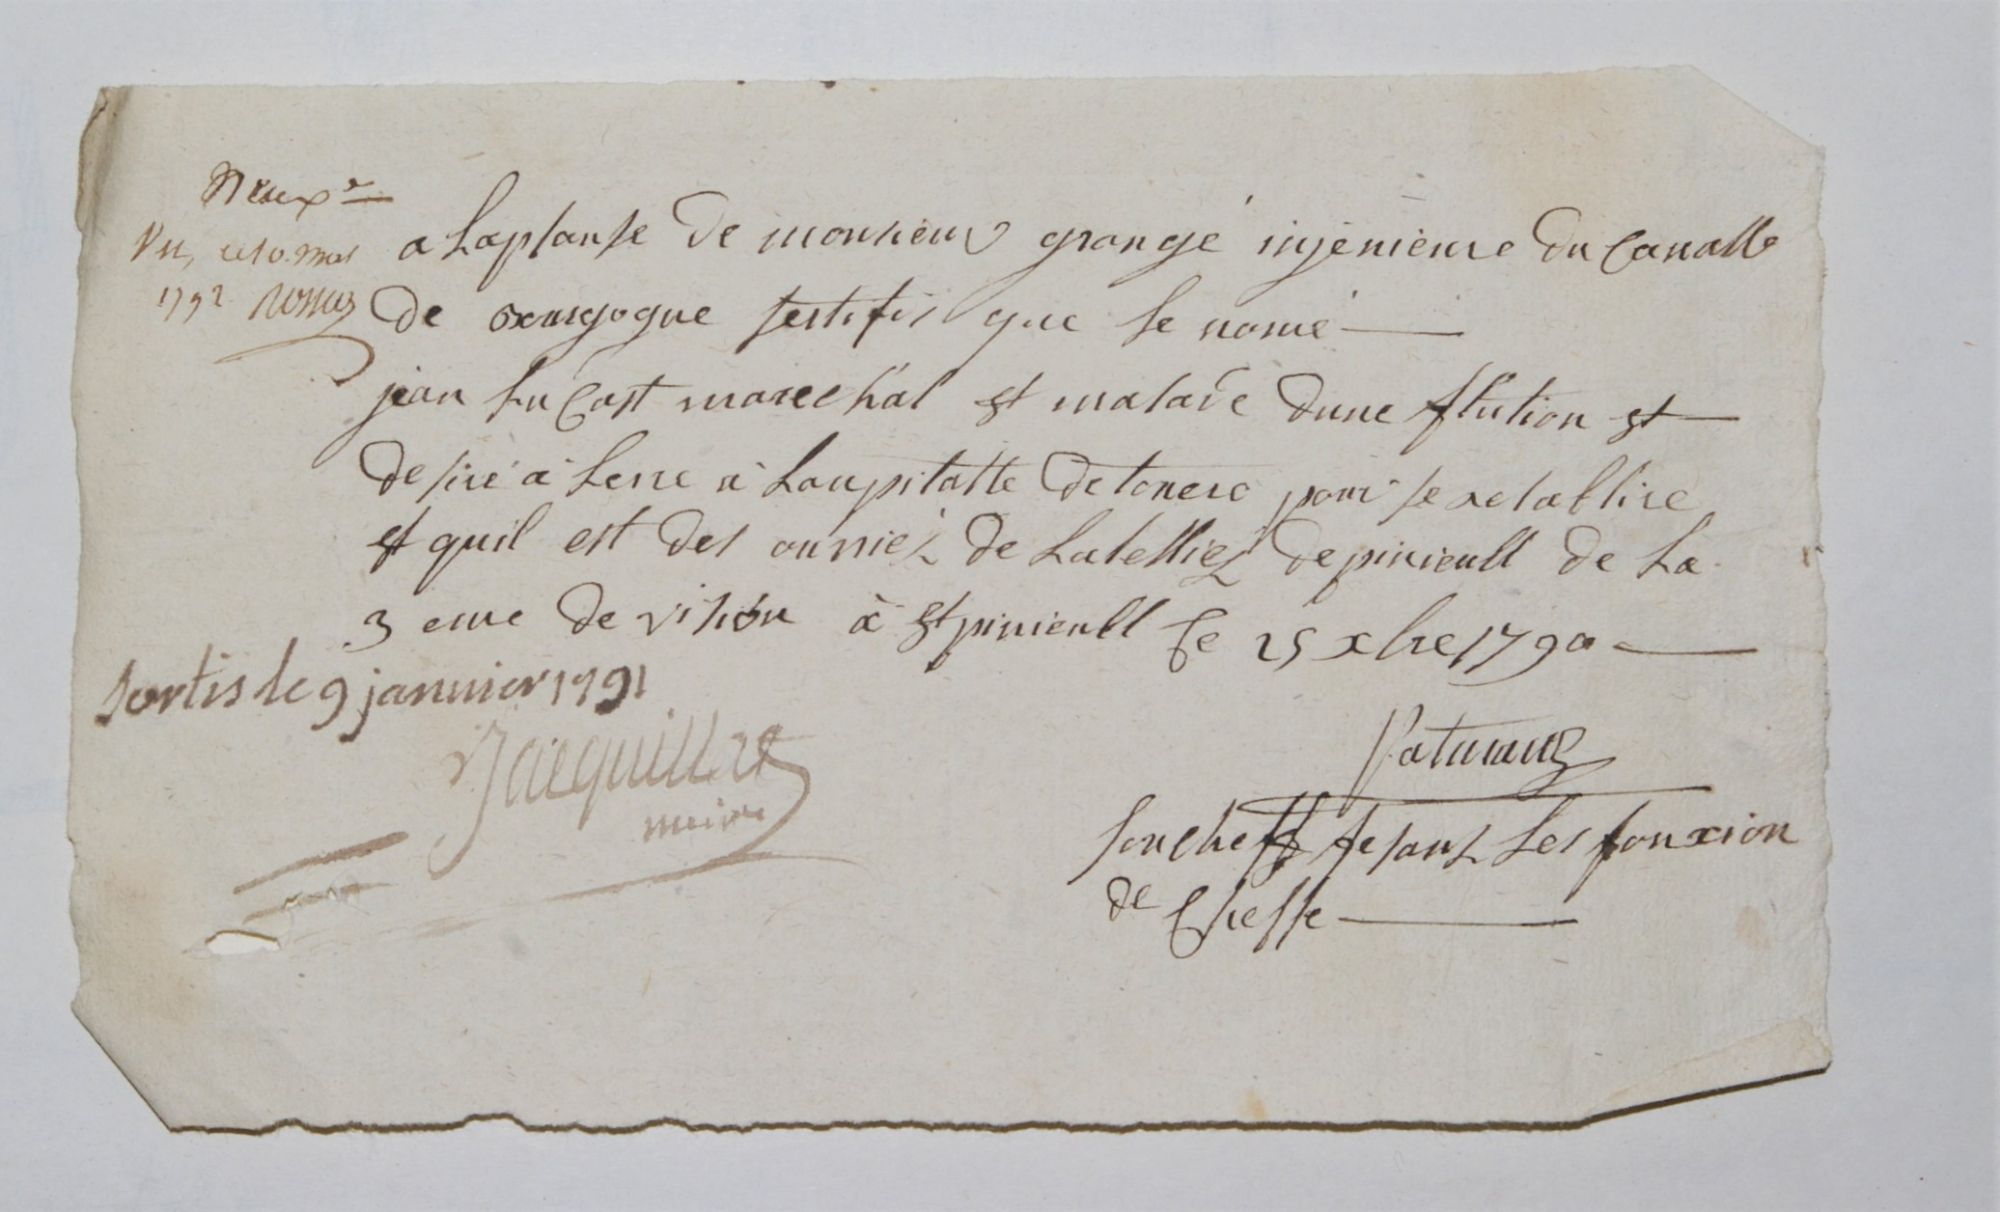 Vu, ce 10 mars
1792
a Laplanse de monsieur grangé injénieure du Canalle
de Bourgogne sertifis que le nomé
jean lu Cast marechal et malade dune flution et
desire a lerre a Loupitalle de tonere pour se retablire
et quil est des ouvriez de Latelliez de pinieull de La
3 eme de vision à St pinieull Ce 25 xbre 1790
Sortis le 9 janvier 1791
Jacquillat
maire
Paturaux
soucheff fesant Les fonxion
de Cheffe